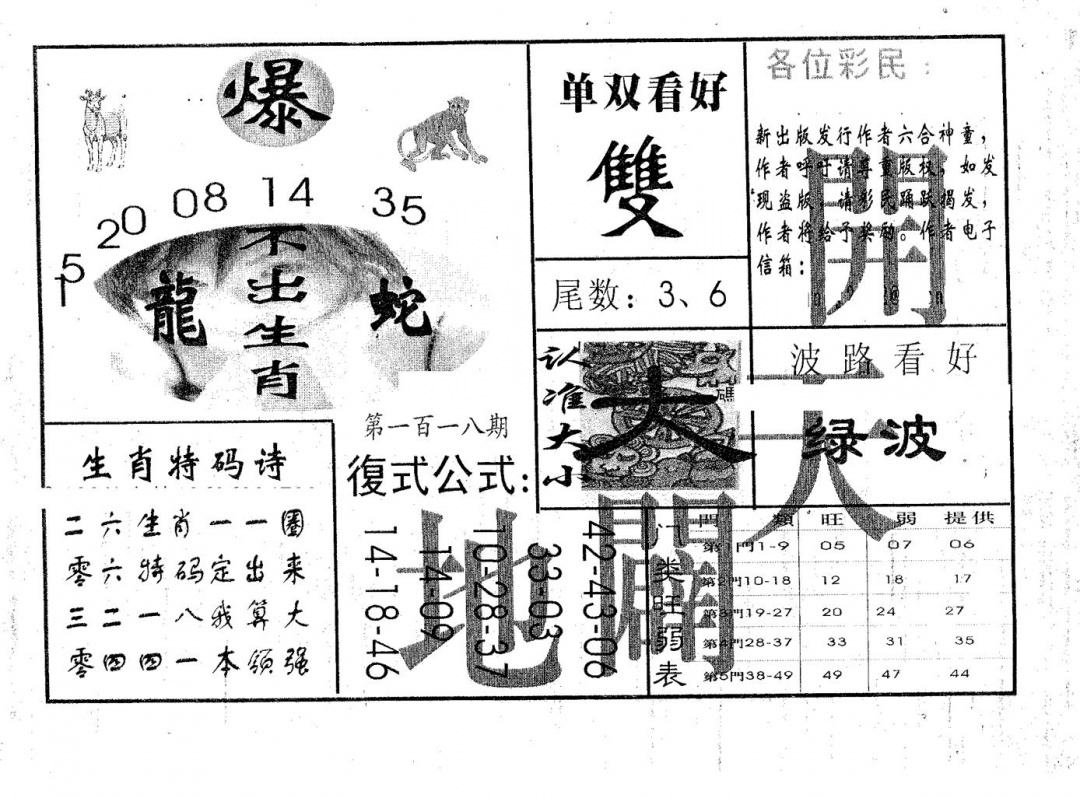 爆
15 20 08 14 35
不出生肖
龍
蛇
单双看好
雙
尾数：3、6
各位彩民：
新出版发行作者六合神童，
作者呼吁请尊重版权，如发
现盗版，请彩民踊跃揭发，
作者将给予奖励。作者电子
信箱：
開
天
闢
地
认准大小
大
碼
波路看好
绿波
第一百一八期
復式公式：
14-18-46
14-09
10-28-37
33-03
42-43-06
生肖特码诗
二六生肖一一圈
零六特码定出来
三二一八我算大
零四四一本领强
门类旺弱表
門類 旺 弱 提供
第1門1-9 05 07 06
第2門10-18 12 18 17
第3門19-27 20 24 27
第4門28-37 33 31 35
第5門38-49 49 47 44